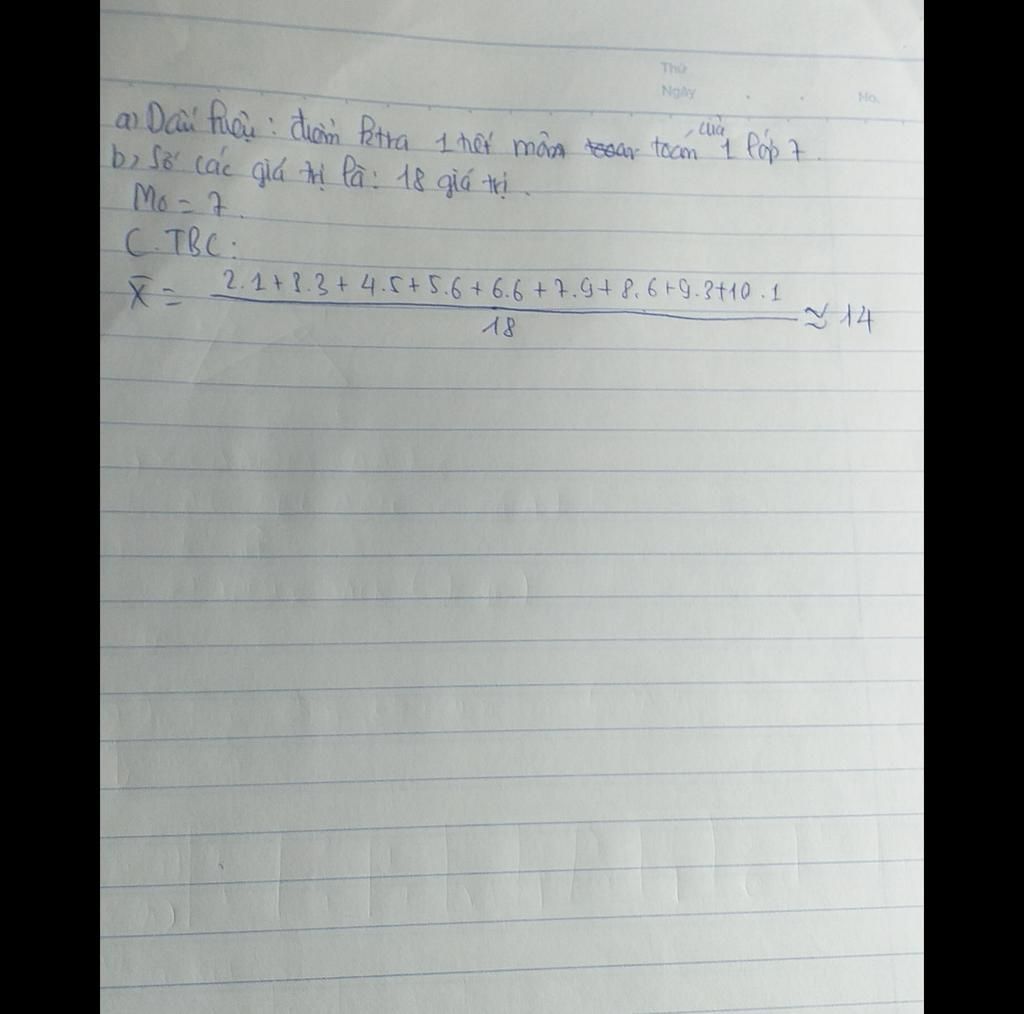 Thứ
Ngày No.
a) Dấu hiệu: điểm ktra 1 tiết môn toán của 1 lớp 7.
b) Số các giá trị là: 18 giá trị.
M₀ = 7.
C. TBC:
X̄ = 2.1+3.3+4.5+5.6+6.6+7.9+8.6+9.3+10.1 / 18 ≈ 14